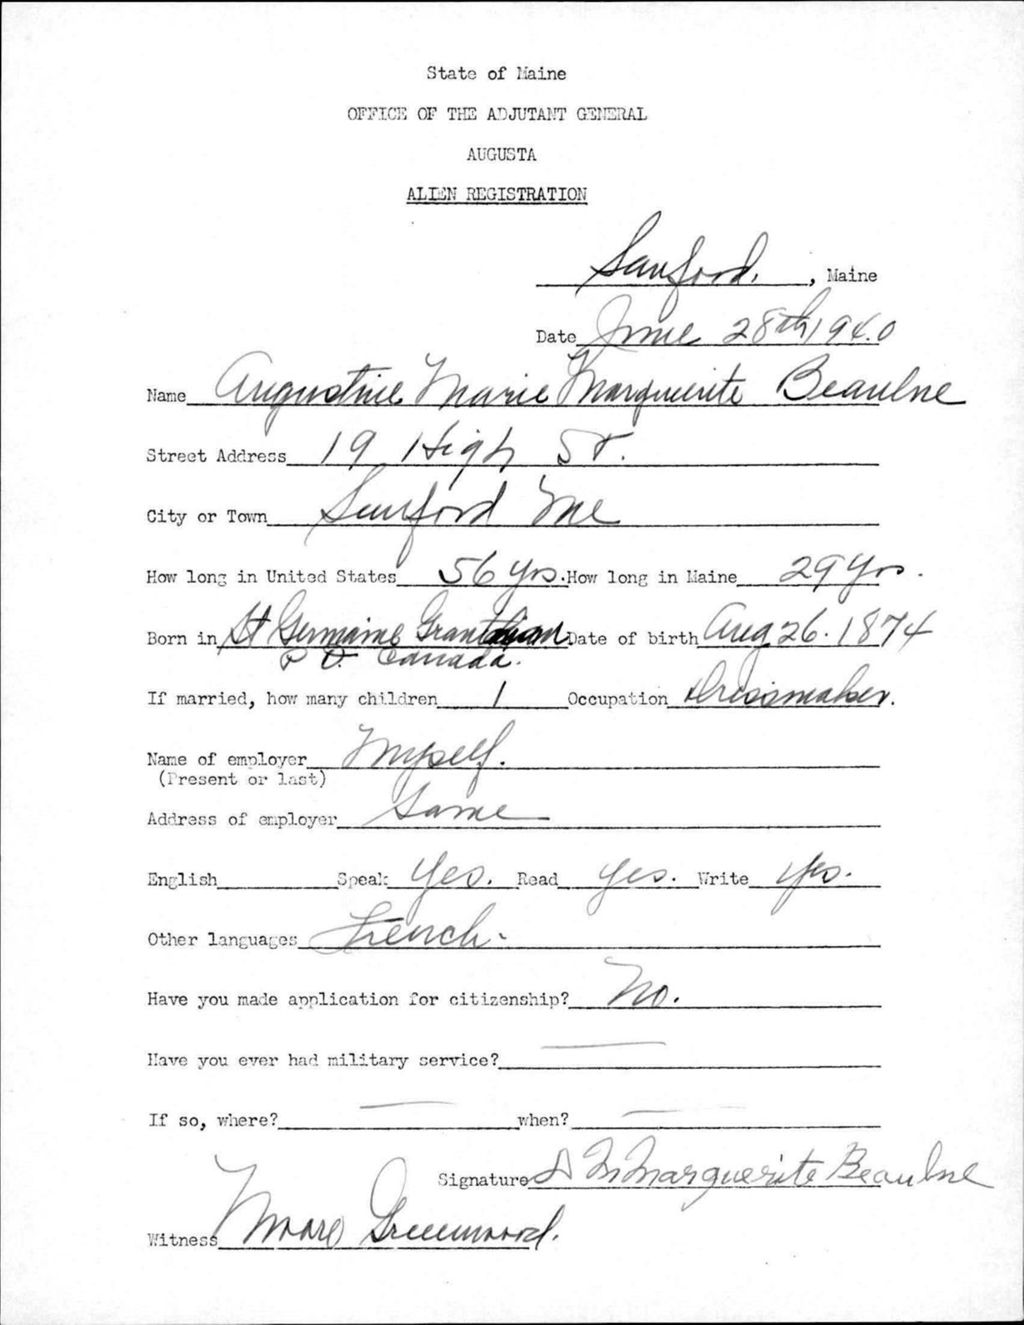 State of Maine
OFFICE OF THE ADJUTANT GENERAL
AUGUSTA
ALIEN REGISTRATION
Sanford, , Maine
Date June 28th 1940
Name Augustine Marie Marguerite Beaulne
Street Address 19 High St.
City or Town Sanford Me
How long in United States 56 yrs. How long in Maine 29 yrs.
Born in St Germaine Grantham Date of birth Aug 26. 1874
P Q. Canada.
If married, how many children 1 Occupation Dressmaker.
Name of employer Myself.
(Present or last)
Address of employer Same
English Speak Yes. Read Yes. Write Yes.
Other languages French.
Have you made application for citizenship? No.
Have you ever had military service? —
If so, where? — when? —
Signature A M Marguerite Beaulne
Witness Moore Greenwood.